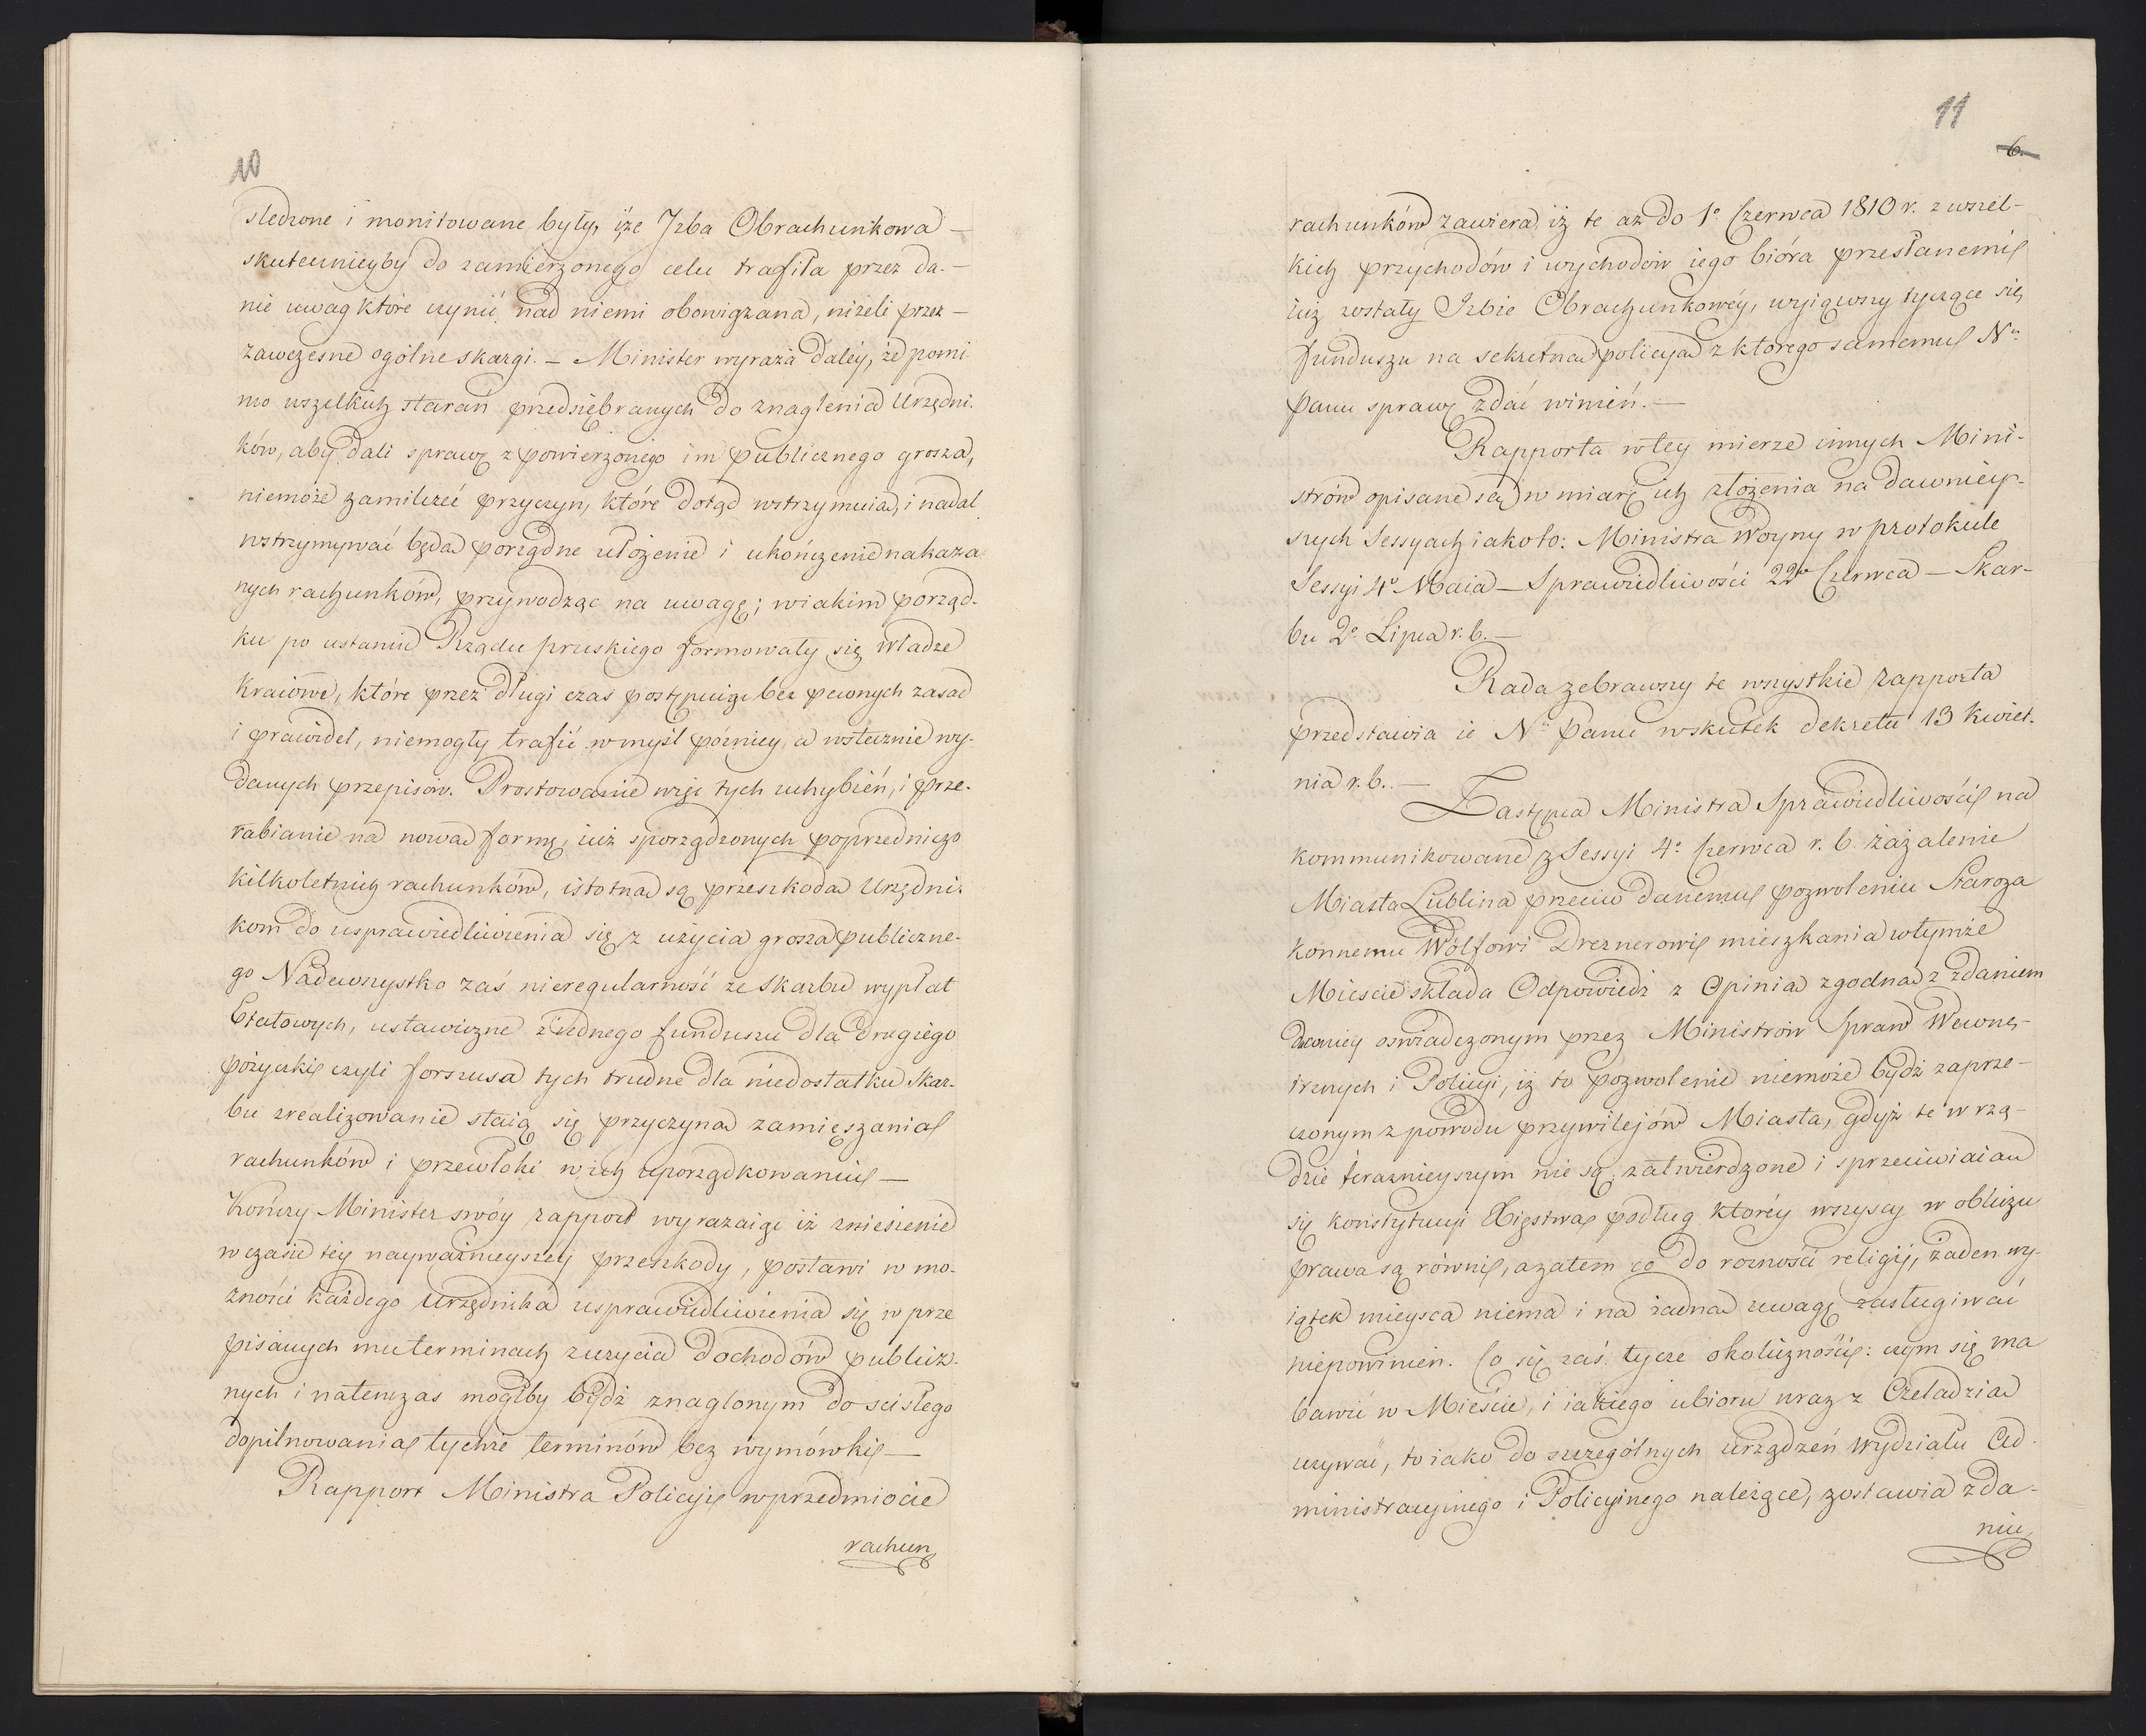 10
sledzone i monitowane były, iże Izba Obrachunkowa —
skuteczniejby do zamierzonego celu trafiła przez da. —
nie uwag które czynić nad niemi obowiązana, niżeli przez —
zawczesne ogólne skargi. — Minister wyraża daley, że pomi
mo wszelkich starań przedsiębranych do znaglenia Urzędni.
ków, aby dali sprawę z powierzonego im publicznego grosza,
niemoże zamilczeć przyczyn, które dotąd wstrzymuią, i nadal
wstrzymywać będą porządne ułożenie i ukończenie nakaza
nych rachunków, przywodząc na uwagę; w iakim porząd-
ku po ustaniu Rządu pruskiego formowały się władze
Kraiowe, które przez długi czas postępuiąc bez pewnych zasad
i prawideł, niemogły trafić w myśl pózniey, a wstecznie wy-
danych przepisów. Prostowanie więc tych uchybień, i prze-
rabianie na nową formę, iuż sporządzonych poprzedniczo
kilkoletnich rachunków, istotną są przeszkodą Urzędni-
kom do usprawiedliwienia się z użycia grosza publiczne-
go Nadewszystko zaś nieregularność ze Skarbu wypłat
Etatowych, ustawiczne z iednego funduszu dla drugiego
pożyczki czyli forszusa tych trudne dla niedostatku Skar-
bu zrealizowanie staią się przyczyną zamięszania
rachunków i przewłoki w ich uporządkowaniu —
Kończy Minister swóy rapport wyrażaiąc iż zniesienie
w czasie tey nayważnieyszéj przeszkody, postawi w mo-
żności każdego Urzędnika usprawiedliwienia się w prze
pisanych mu terminach z użycia dochodów publicz-
nych i natenczas mógłby bydź znaglonym do scisłego
dopilnowania tychże terminów bez wymówki —
Rapport Ministra Policyi w przedmiocie
rachun
11
6.
rachunków zawiera, iż te aż do 1° Czerwca 1810 r. z wszel-
kich przychodów i wychodów iego bióra przesłanemi
iuż zostały Izbie Obrachunkowéy, wyiąwszy tyczące się
funduszu na sekretną policyą z którego samemu Nu
Panu sprawę zdać winień. —
Rapporta w tey mierze innych Mini-
strów opisane są w miarę ich złożenia na dawniey-
szych Sessyach iako to: Ministra Woyny w protokule
Sessyi 4° Maia — Sprawiedliwości 22° Czerwca — Skar-
bu 2° Lipca r. b. —
Rada zebrawszy te wszystkie rapporta
przedstawia ie Nu Panu wskutek dekretu 13 Kwiet.
nia r. b. —
Zastępca Ministra Sprawiedliwości na
kommunikowane z Sessyi 4° Czerwca r. b. zażalenie
Miasta Lublina przeciw danemu pozwoleniu Staroza
konnemu Wolfowi Dreznerowi mieszkania w tymże
Mieście składa Odpowiedź z Opinią zgodną z zdaniem
dawniey oswiadczonym przez Ministrów Spraw Wewnę-
trznych i Policyi, iż to pozwolenie niemoże bydź zaprze-
czonym z powodu przywilejów Miasta, gdyż te w rzą-
dzie teraznieyszym nie są zatwierdzone i sprzeciwiaią
się konstytucyi Xięstwa podług któréy wszyscy w obliczu
prawa są równi, azatem co do rożności religij, żaden wy-
iątek mieysca niema i na żadną uwagę zasługiwać
niepowinien. Co się zaś tycze okoliczności: czym się ma
bawić w Mieście, i iakiego ubioru wraz z Czeladzią
używać, to iako do szczególnych urządzeń Wydziału Ad-
ministracyinego i Policyinego należące, zostawia zda-
niu